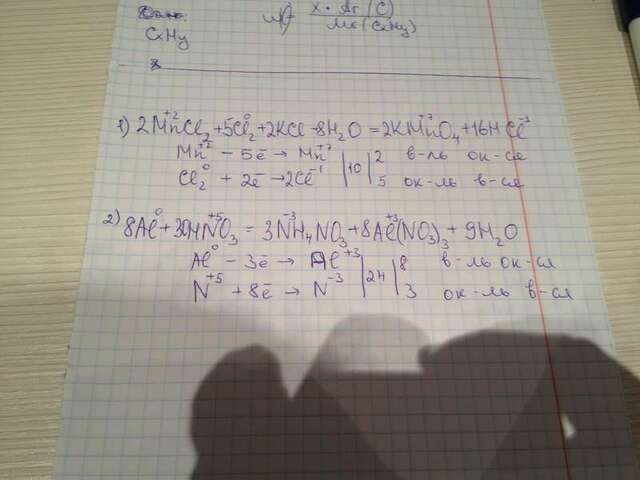 Дано:
CxHy
ω = x·Ar(C) / Mr(CxHy)
1) 2Mn⁺²Cl₂ + 5Cl₂⁰ + 2KCl + 8H₂O = 2KMn⁺⁷O₄ + 16HCl⁻¹
Mn⁺² – 5ē → Mn⁺⁷ | 10 | 2 в-ль ок-ся
Cl₂⁰ + 2ē → 2Cl⁻¹ | | 5 ок-ль в-ся
2) 8Al⁰ + 30HN⁺⁵O₃ = 3N⁻³H₄NO₃ + 8Al⁺³(NO₃)₃ + 9H₂O
Al⁰ – 3ē → Al⁺³ | 24 | 8 в-ль ок-ся
N⁺⁵ + 8ē → N⁻³ | | 3 ок-ль в-ся